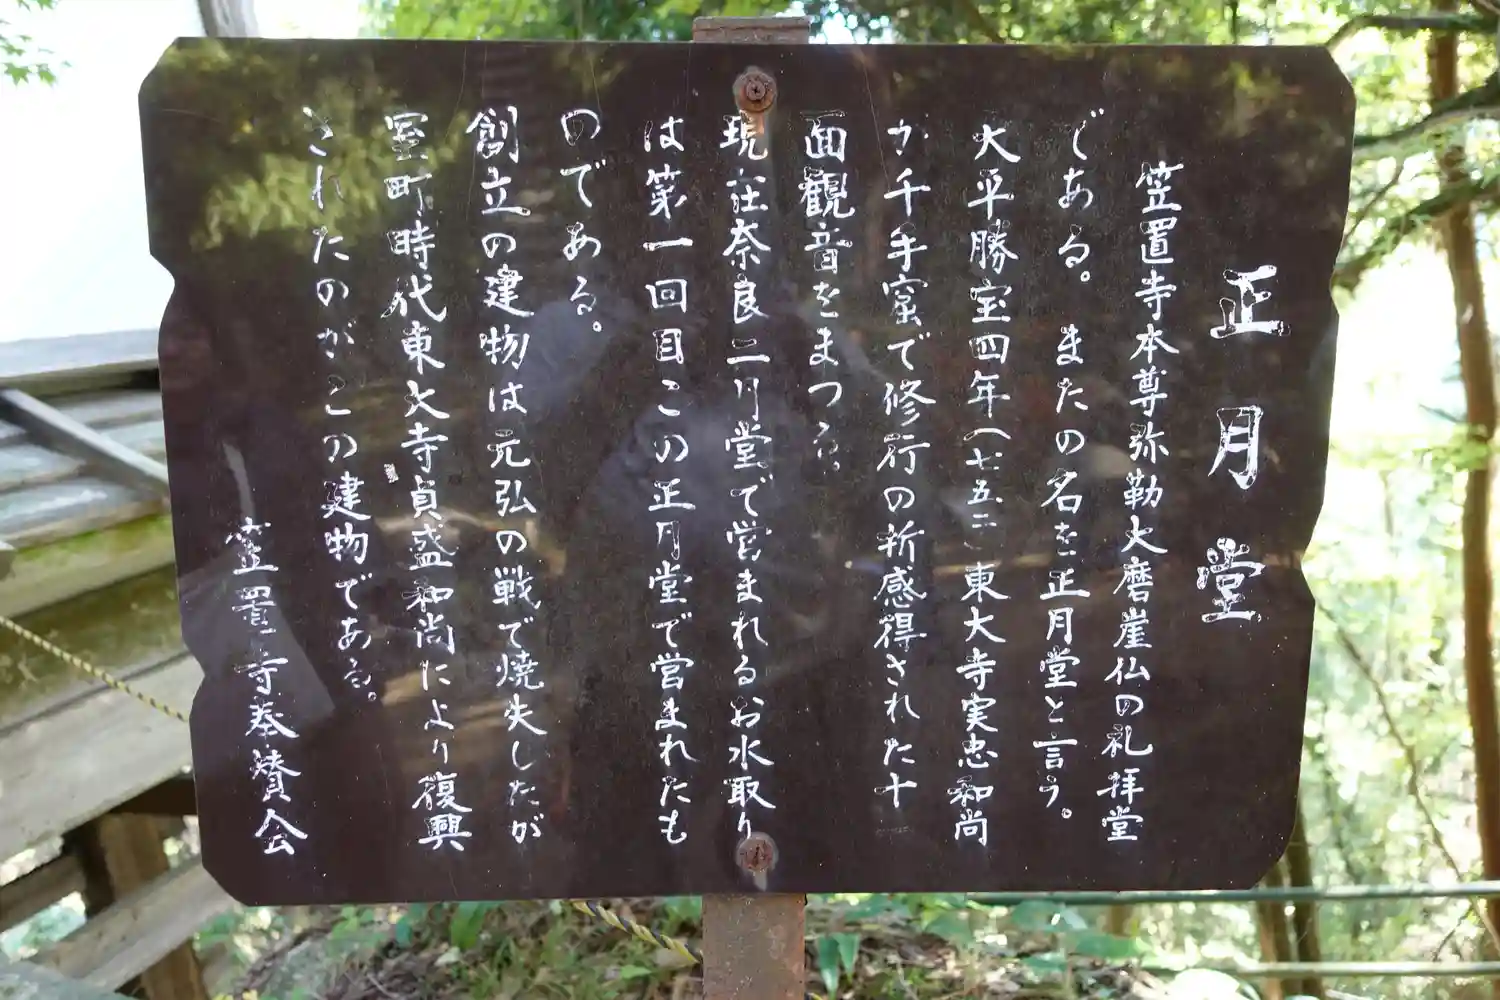 正月堂
笠置寺本尊弥勒大磨崖仏の礼拝堂
である。またの名を正月堂と言う。
大平勝宝四年(七五二)東大寺実忠和尚
が千手窟で修行の折感得された十一
面観音をまつる。
現在奈良二月堂で営まれるお水取り
は第一回目この正月堂で営まれたも
のである。
創立の建物は元弘の戦で焼失したが
室町時代東大寺貞盛和尚により復興
されたのがこの建物である。
笠置寺奉賛会